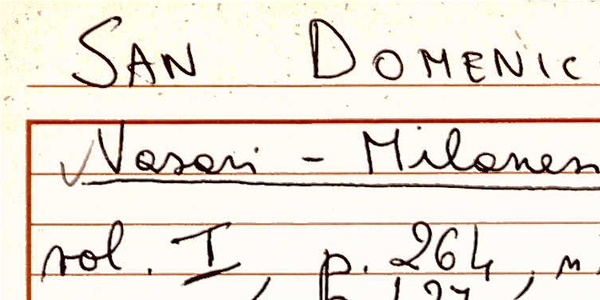 SAN DOMENIC
Vasari - Milanesi
vol. I, p. 264, n